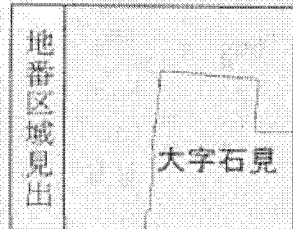 地番区域見出
大字石見